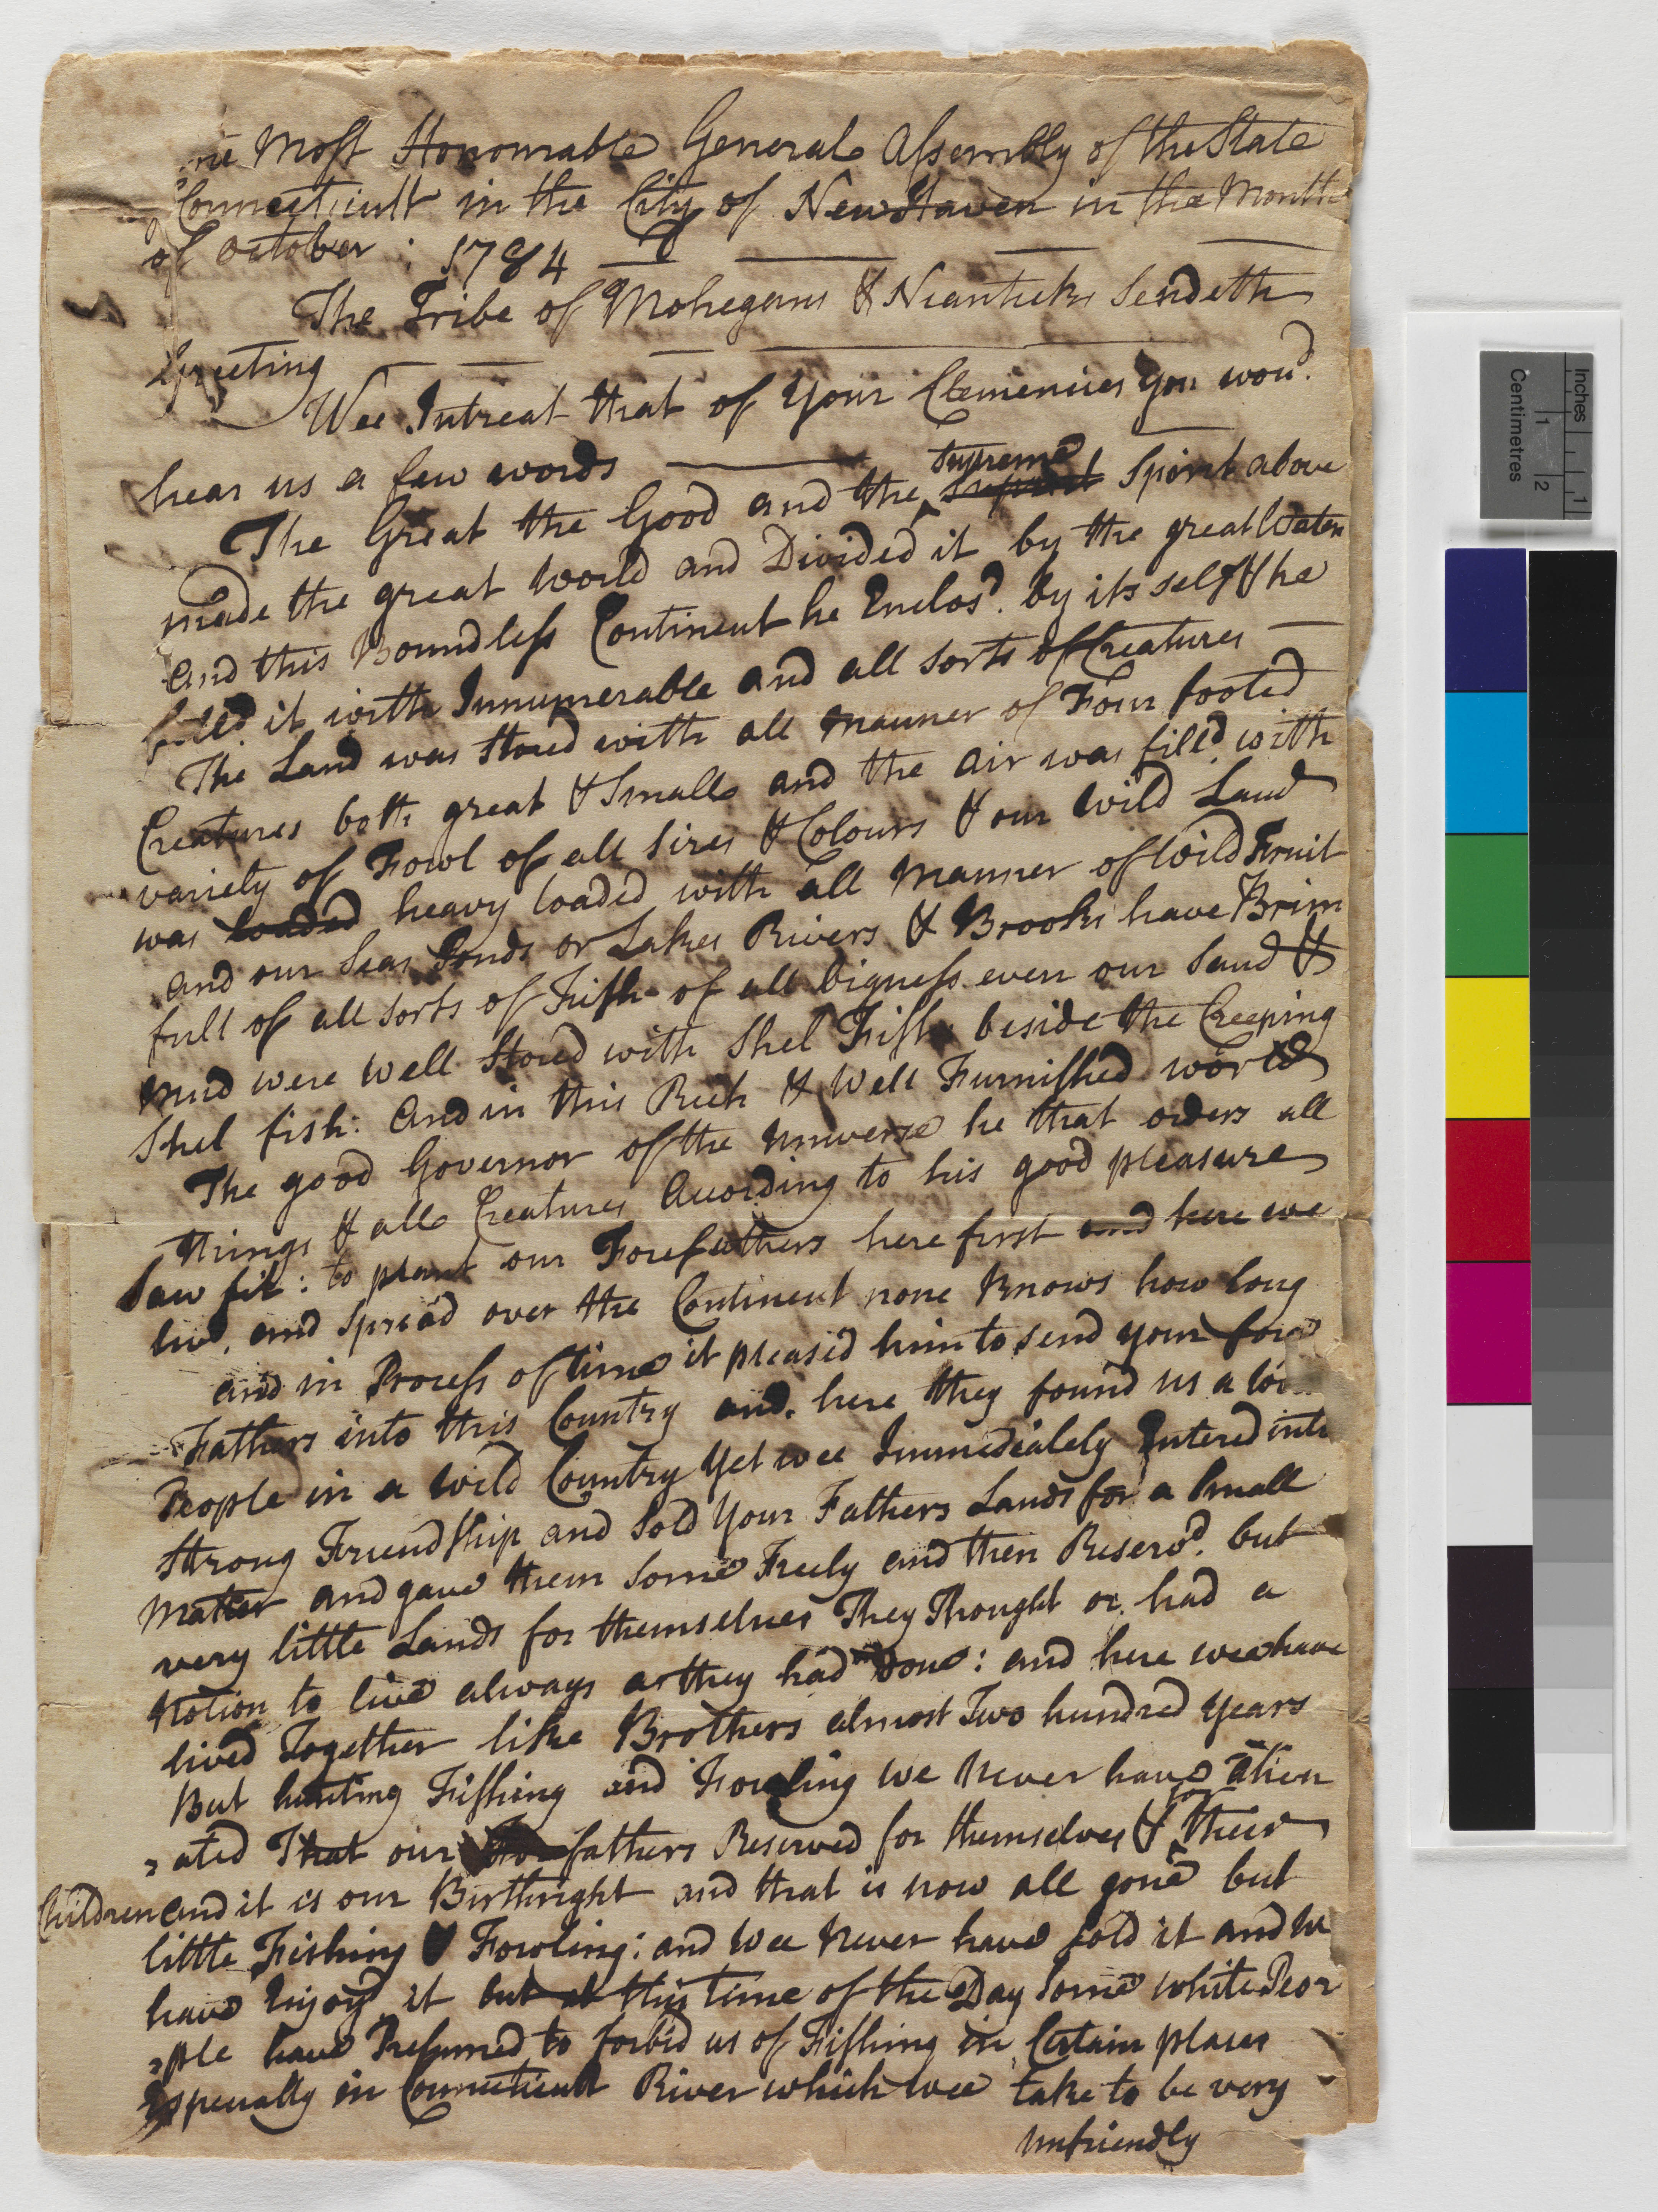 Most Honourable General Assembly of the State
Connecticutt in the City of New Haven in the Month
of October : 1784
The Tribe of Mohegans & Nianticks Sendeth
Greeting
Wee Intreat that of Your Clemencies you wou'd
hear us a few words
The Great the Good and the Supreme Spirit above
made the great World and Divided it by the great Waters
and this Boundless Continent he Enclos'd by its self & he
filled it with Innumerable and all sorts of Creatures
The Land was Stored with all manner of Four footed
Creatures both great & Small and the air was fill'd with
variety of Fowl of all Sizes & Colours & our Wild Land
was loaded heavy loaded with all manner of Wild Fruit
and our Seas Ponds or Lakes Rivers & Brooks have Brim
full of all Sorts of Fish of all bigness even our Sand &
Mud were well Stored with Shel Fish beside the Creeping
Shel fish: And in this Rich & Well Furnished World
The good Governor of the Universe he that orders all
things & all Creatures Acording to his good pleasure
Saw fit: to plant our Forefathers here first and here we
liv'd, and Spread over the Continent none knows how long
and in Process of time it pleased him to send your fore
Fathers into this Country and here they found us a
People in a Wild Country Yet wee Immedialely Entered into
Strong Friendship and Sold Your Fathers Lands for a Small
Matter and gave them Some Freely and then Reserv'd but
very little Lands for themselves They Thought or had a
Notion to live always as they had done: and here wee have
lived Together like Brothers almost Two hundred Years
But hunting Fishing and Fowling we Never have alien
ated That our fathers Reserved for themselves & for their
Children and it is our Birthright and that is now all gone but
little Fishing & Fowling: and Wee Never have sold it and We
have Injoy'd it but at this time of the Day Some white Peo
ple have Presumed to forbid us of Fishing in Certain places
Especually in Connecticutt River which Wee take to be very
unfriendly
Inches
1
Centimetres
1
2